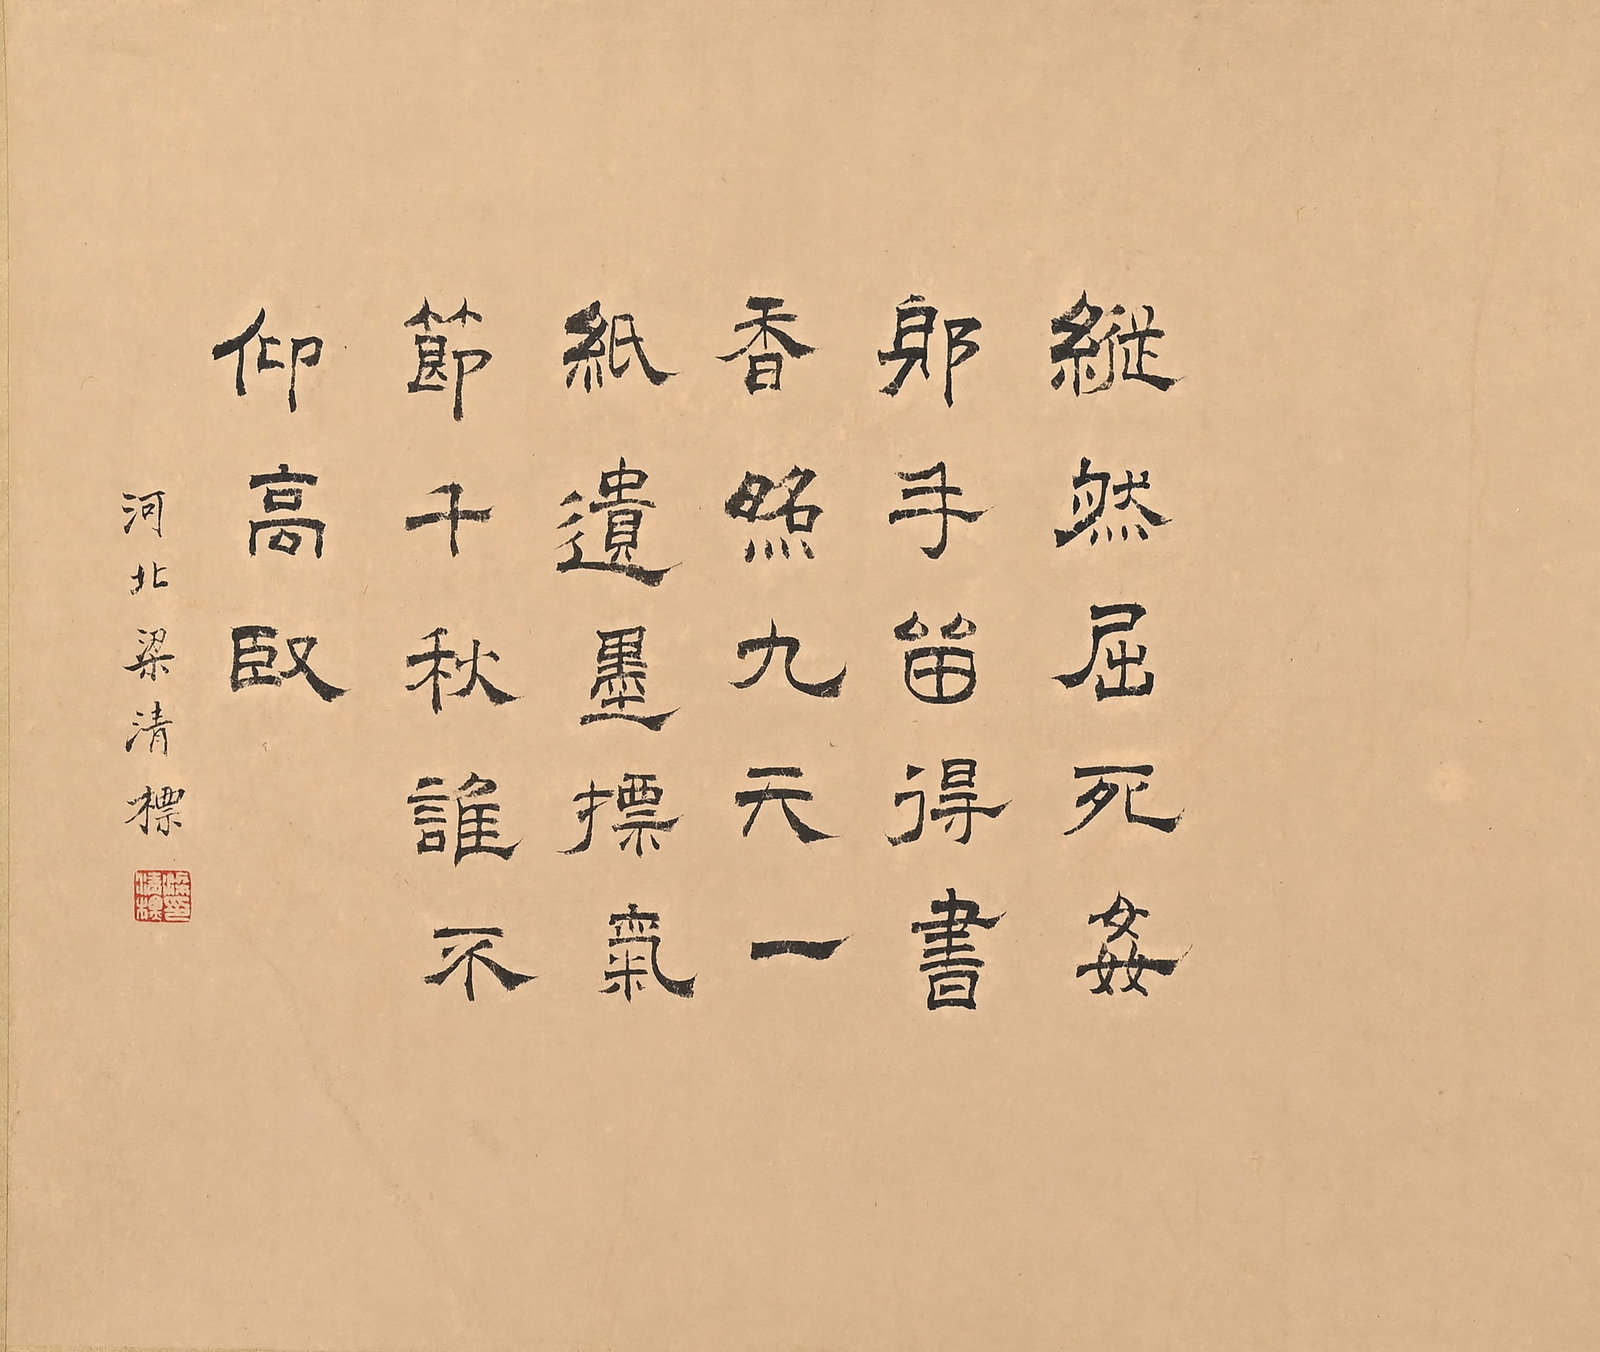 縱然屈死姦
邪手留得書
香照九天一
紙遺墨摽氣
節千秋誰不
仰高臤
河北梁清標